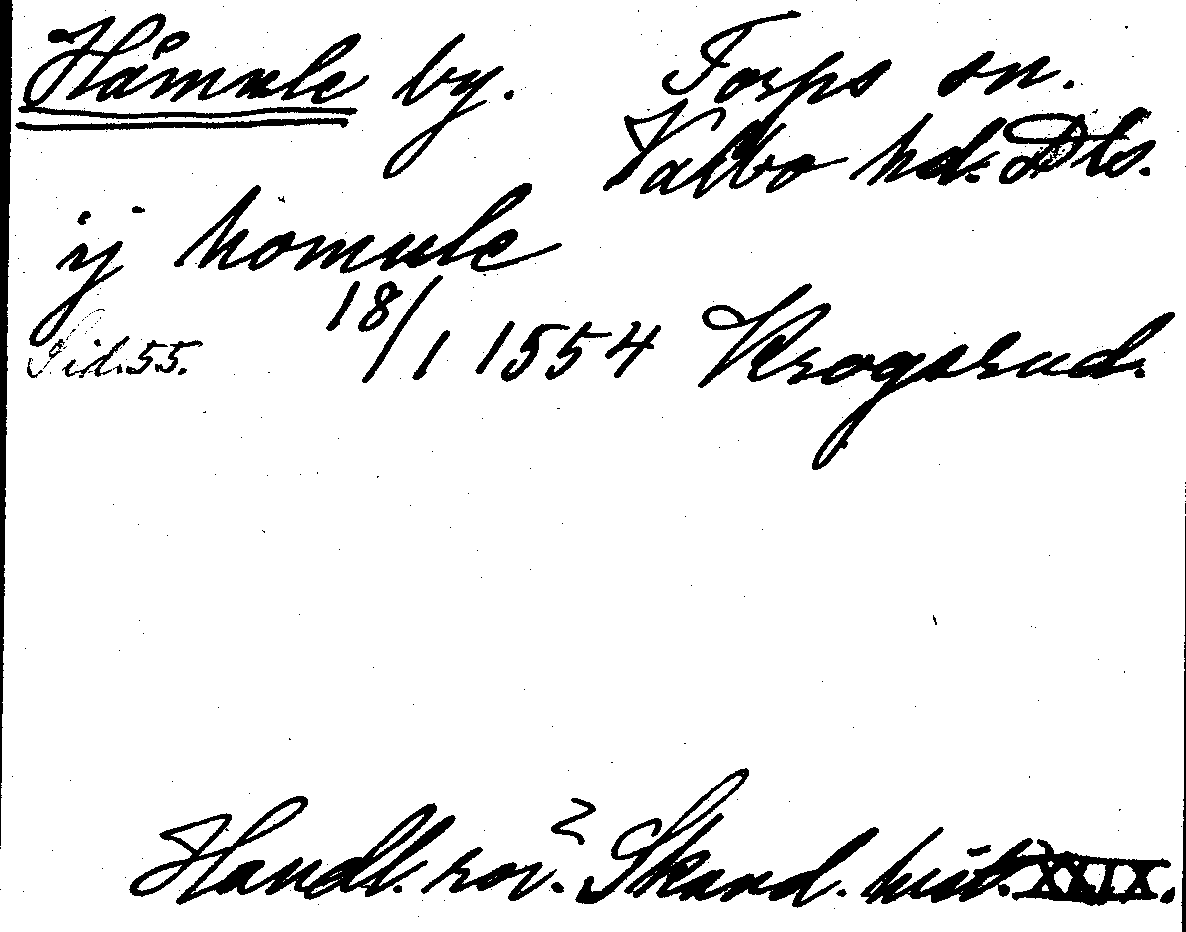 Håmule by. Torps sn.
Valbo hd. Dls.
ij homule
Sid. 55. 18/1 1554 Krogsrud.
Handl. rör. Skand. hist. XXIX.